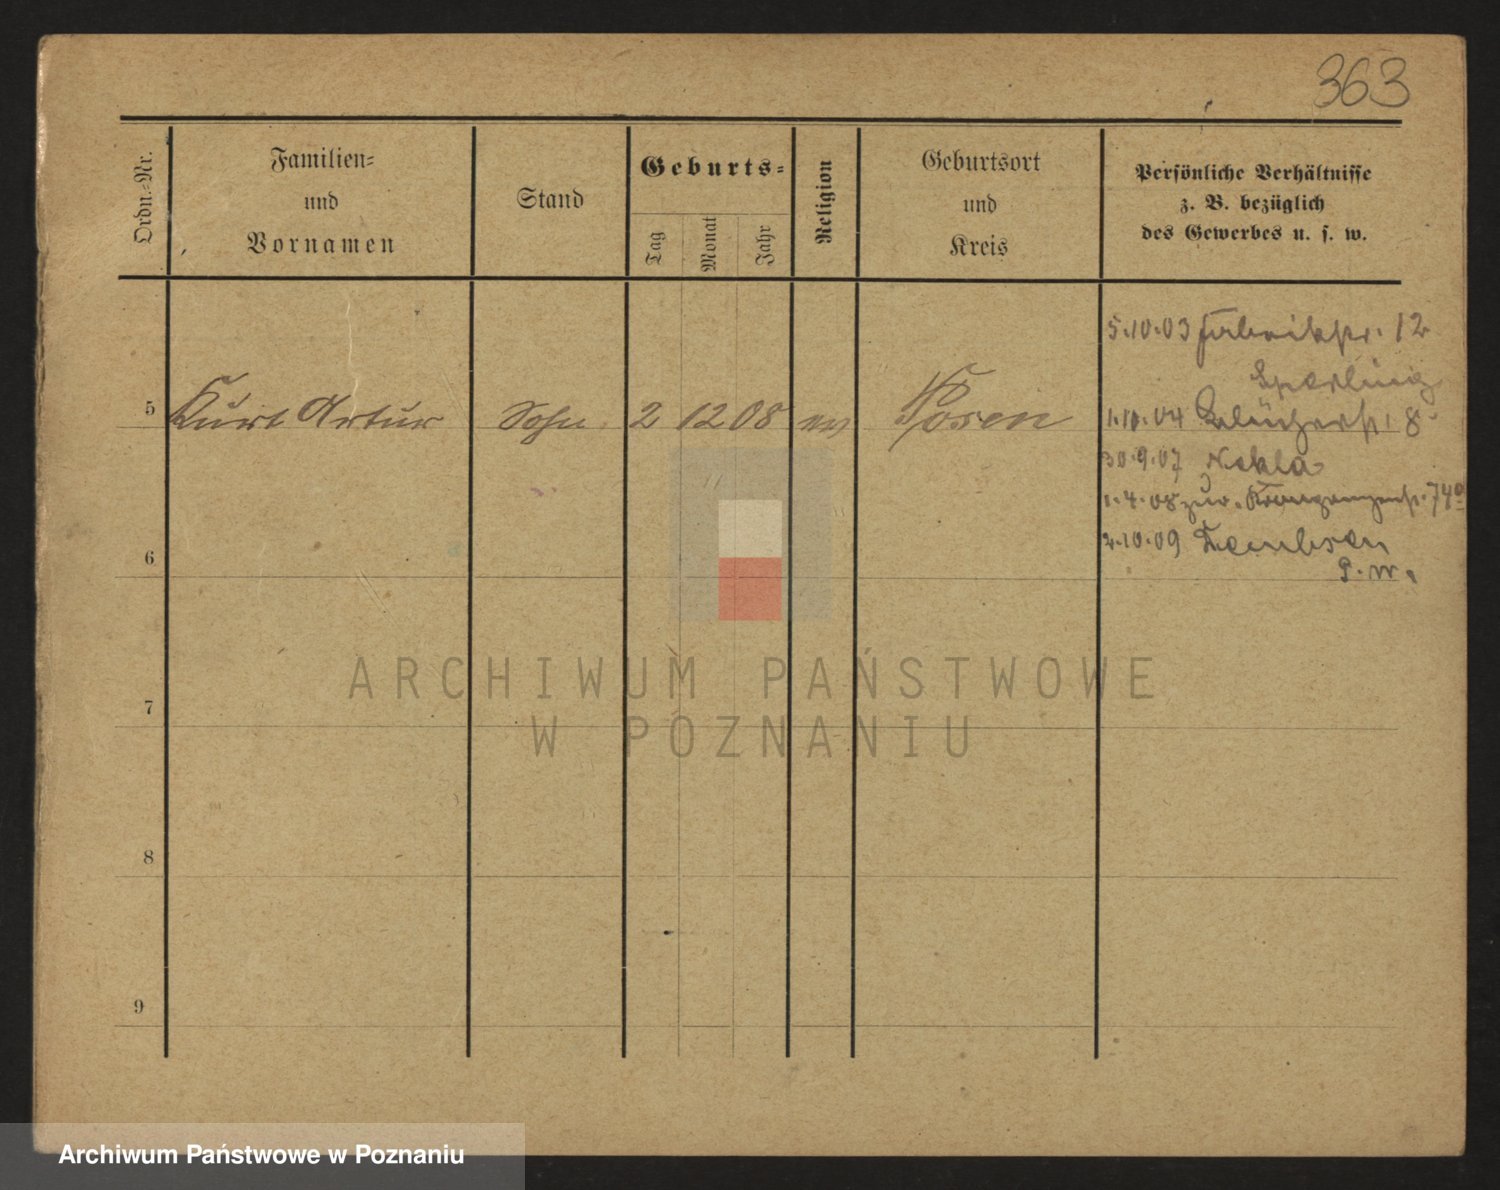 363
Ordn.-Nr.
Familien-
und
Vornamen
Stand
Geburts-
Tag
Monat
Jahr
Religion
Geburtsort
und
Kreis
Persönliche Verhältnisse
z. B. bezüglich
des Gewerbes u. s. w.
5.10.03 Fabrikstr. 12
Sperling
5 Kurt Artur Sohn 2 12 08 ev Posen
1.10.04 Blücherstr. 8
30.9.07 Nekla
1.4.08 zur. Kronprinzenstr. 74a
2.10.09 Dembsen
P. W.
6
7
8
9
ARCHIWUM PAŃSTWOWE
W POZNANIU
Archiwum Państwowe w Poznaniu